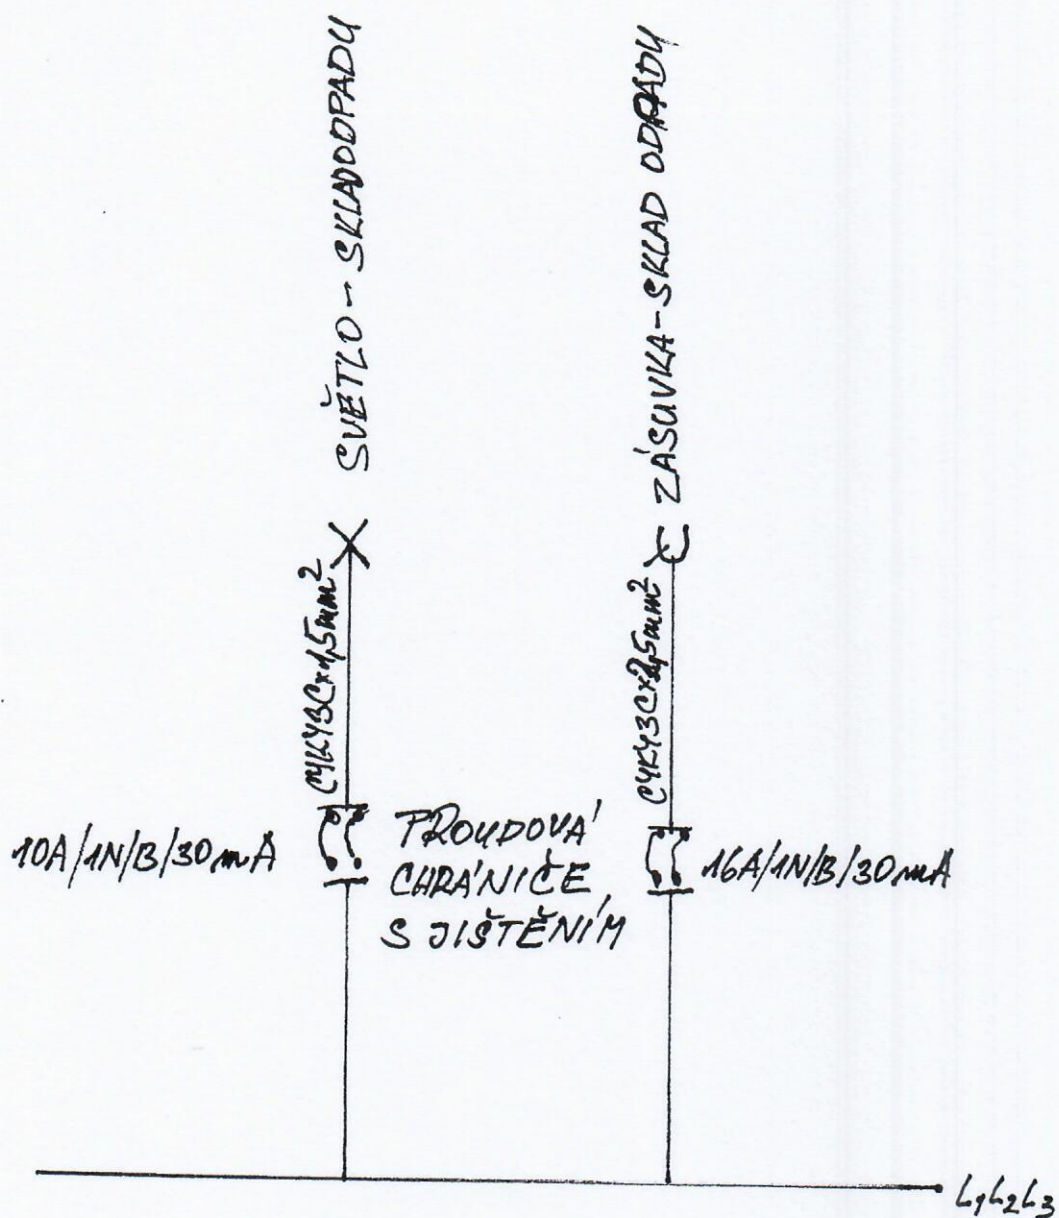 SVĚTLO - SKLAD ODPADU
ZÁSUVKA - SKLAD ODPADU
CYKY3Cx1,5mm²
CYKY3Cx2,5mm²
10A/1N/B/30mA
PROUDOVÁ
CHRÁNIČE
S JIŠTĚNÍM
16A/1N/B/30mA
L1L2L3